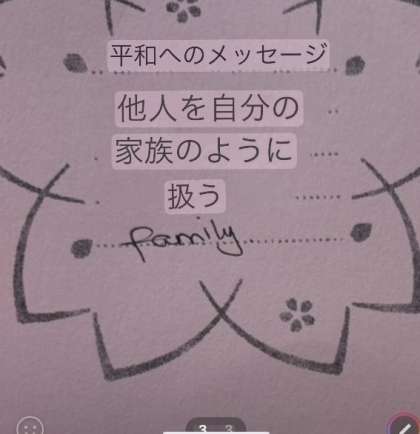 平和へのメッセージ
他人を自分の
家族のように
扱う
family.
3 3